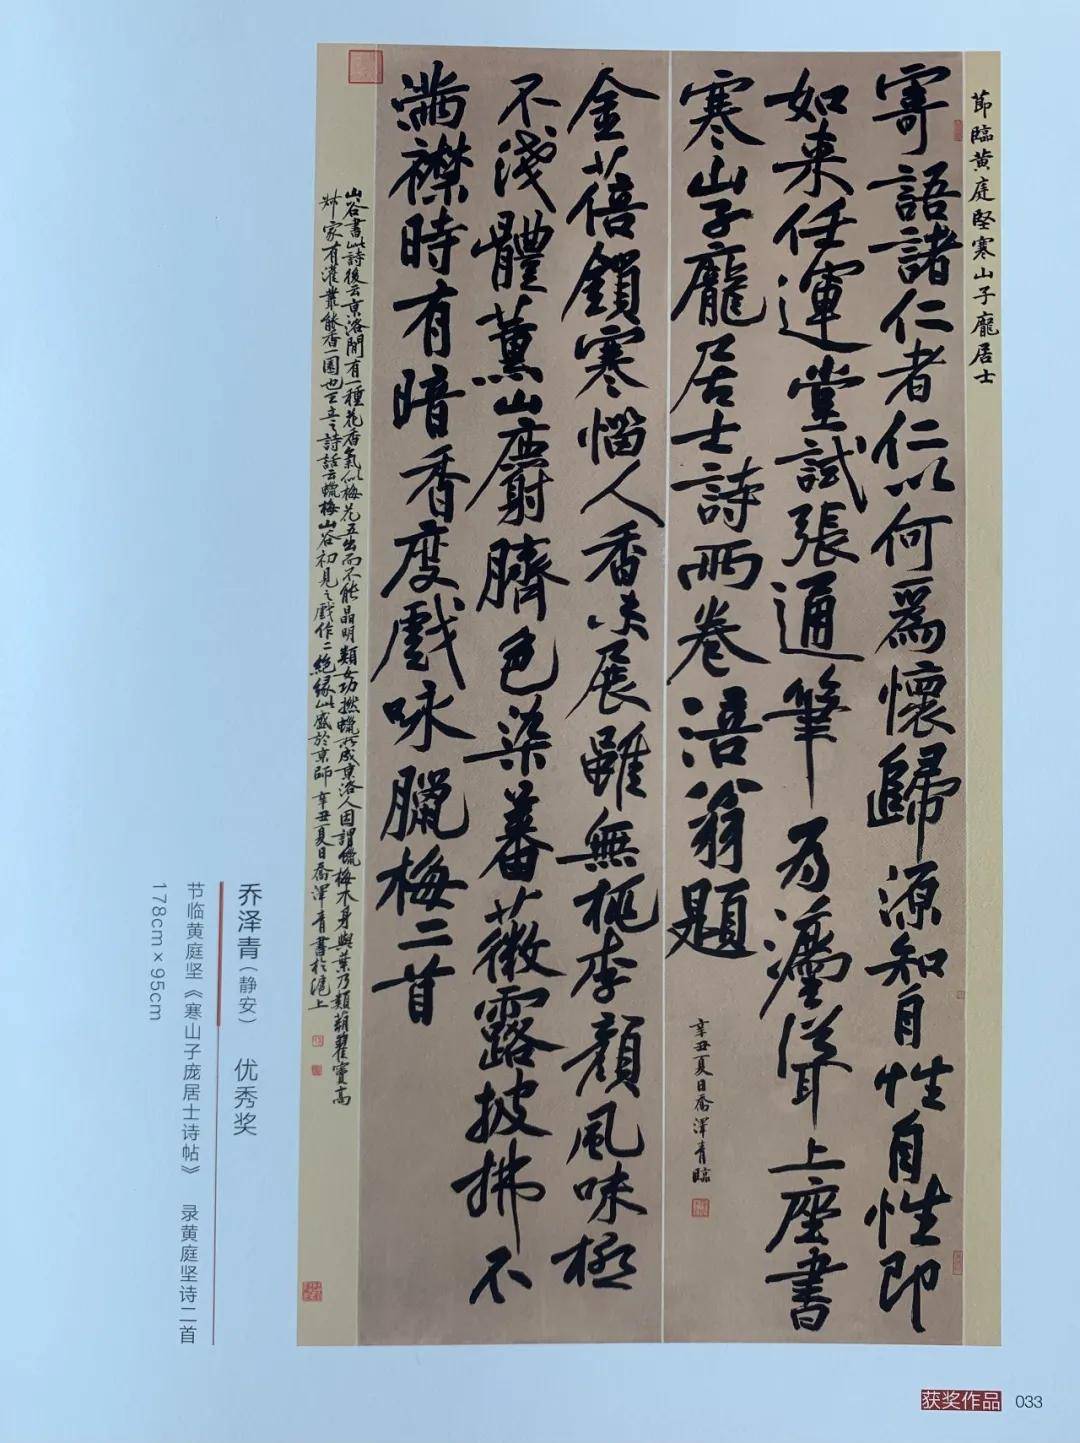 莭臨黄庭堅寒山子龐居士
寄語諸仁者仁以何為懷歸源知自性自性即
如来任運堂試張通筆為灋聳上座書
寒山子龐居士詩兩卷涪翁題
辛丑夏日喬澤青臨
金蓓鎖寒惱人香未展雖無桃李顏風味極
不淺體薰山麝臍色染薔薇露披拂不
滿襟時有暗香度戲咏臘梅二首
山谷書此詩後云京洛間有一種花香氣似梅花五出而不能晶明類女功撚蠟所成京洛人因謂蠟梅木身與葉乃類蒴藋竇高
州家有灌叢能香一園也王立之詩話云蠟梅山谷初見之戲作二絕緣此盛於京師 辛丑夏日喬澤青書於滬上
乔泽青（静安） 优秀奖
节临黄庭坚《寒山子庞居士诗帖》 录黄庭坚诗二首
178cm×95cm
获奖作品 033